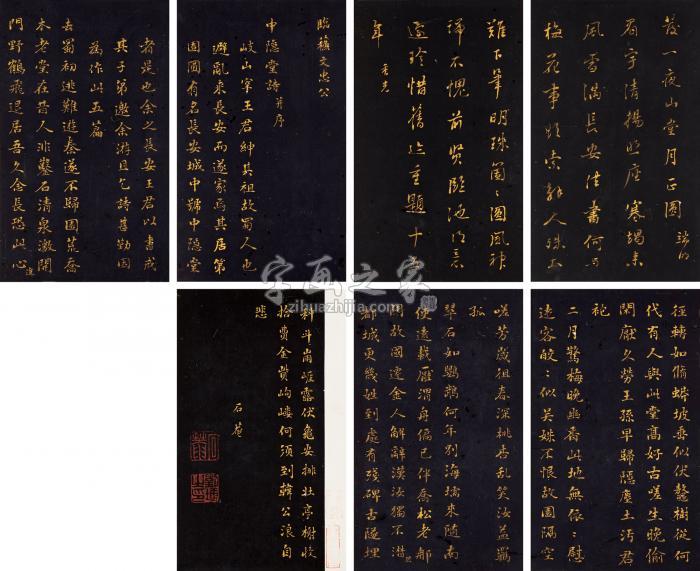 發一夜山堂月正圓
眉宇清揚照座寒
風雪滿長安法書何
梅花事 索解人殊
難下筆明珠箇〻圓風神
端不愧前賢臨池得意
還珍惜舊 重題十五
年
臨蘇文忠公
中隱堂詩并序
岐山宰王君紳其祖故蜀人也
避亂來長安而遂家焉其居第
園圃有名長安城中號中隱堂
者是也余之長安王君以書戒
其子弟邀余游且乞詩甚勤因
為作此五篇
去蜀初逃難遊秦遂不歸園荒喬
木老堂在昔人非鑿石清泉激開
門野鶴飛退居吾久念長恐此心違
徑轉如脩蟒坡垂似伏鼇樹從何
代有人與此堂高好古嗟生晚偷
閑厭久勞王孫早歸隱塵土污君
袍
二月驚梅晚幽香此地無依〻慰
遠客皎〻似吳姝不恨故園隔空
嗟芳歲徂春深桃杏亂笑汝益羈
孤
翠石如鸚鵡何年別海壖來隨南
使遠載壓渭舟偏已伴喬松老那
知故國遷金人解辭漢汝獨不潸然
都城更幾姓到處有殘碑古隧埋
科斗崩崖露伏龜安排壯亭榭收
拾費金貲岣嶁何須到韓公浪自
悲
石菴
字画之家
zihuazhijia.com